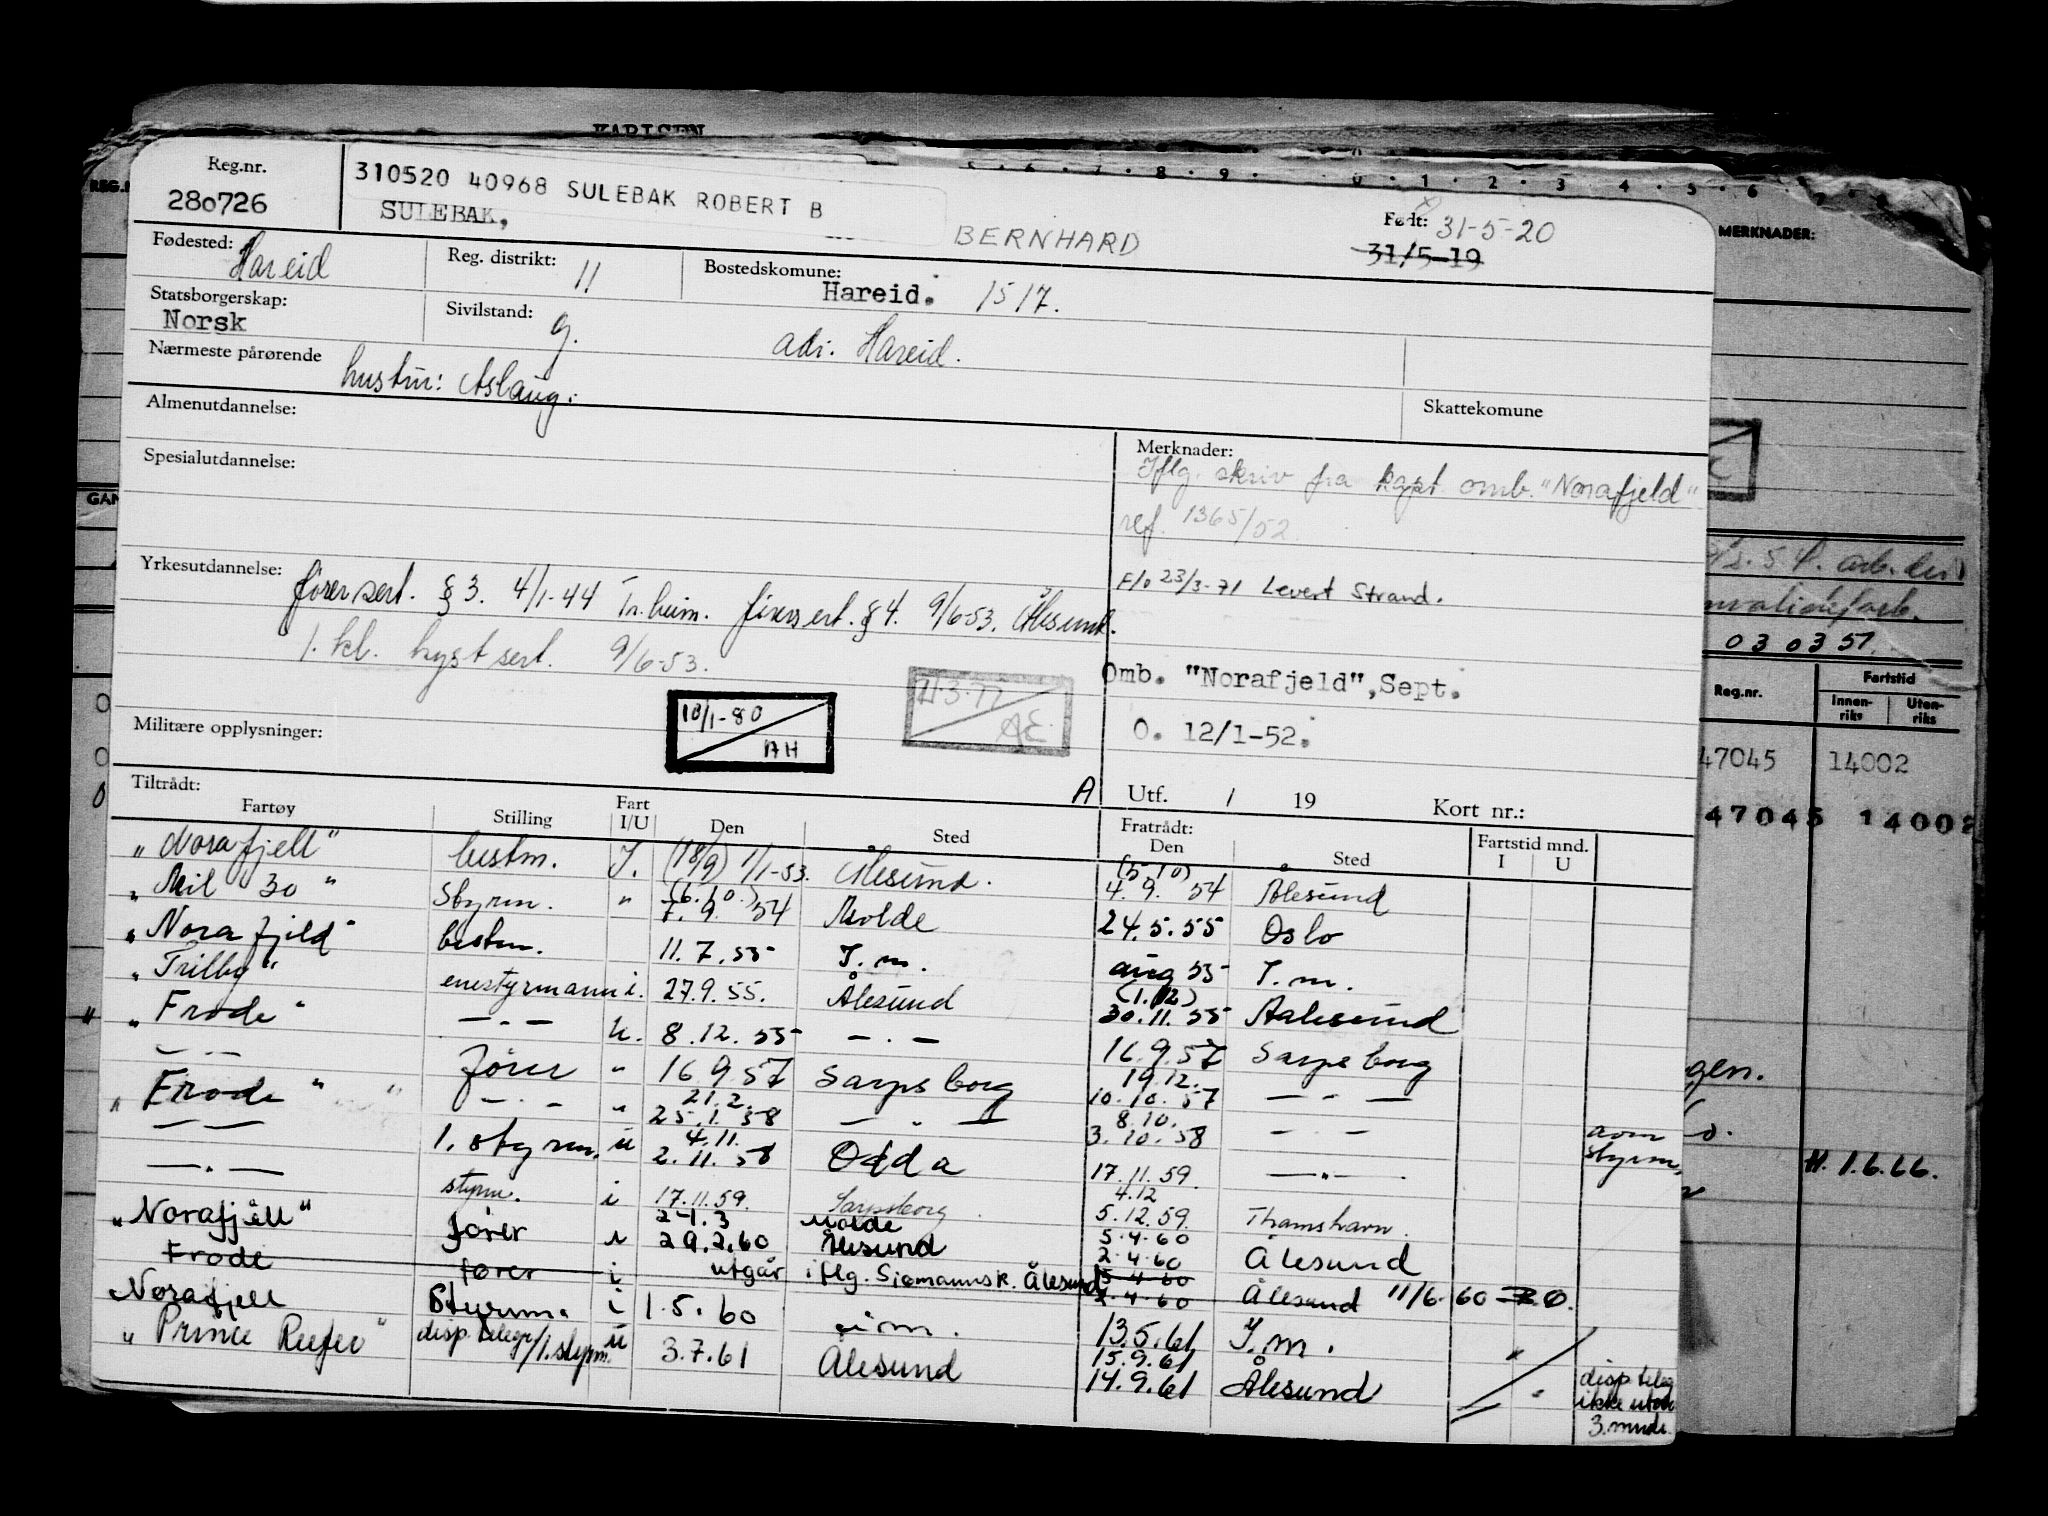 KARLSEN
Reg.nr. 280726
310520 40968 SULEBAK ROBERT B
SULEBAK, BERNHARD
Født: 31-5-20
31/5-19
Fødested: Hareid
Reg. distrikt: 11
Bostedskomune: Hareid. 1517.
Statsborgerskap: Norsk
Sivilstand: g.
adr. Hareid.
Nærmeste pårørende hustru: Aslaug.
Almenutdannelse:
Skattekomune
Spesialutdannelse:
Merknader:
Iflg. skriv fra kapt omb. "Norafjeld"
ref. 1365/52
F/o 23/3-71 Levert Strand.
Yrkesutdannelse: førersert. § 3. 4/1-44 Tr.heim. førersert. § 4. 9/6-53. Ålesund.
1. kl. kystsert. 9/6-53.
Omb. "Norafjeld", Sept.
O. 12/1-52.
10/1-80 AH
11-3-77 AE
Militære opplysninger:
Tiltrådt: A Utf. / 19 Kort nr.:
Fartøy Stilling Fart I/U Den Sted Fratrådt: Den Sted Fartstid mnd. I U
"Norafjell" bestm. I. (18/9) 1/1-53. Ålesund. (5.10) 4.9. 54 Ålesund
"Mil 30" styrm. " (6.10.) 7.9. 54 Molde 24.5.55 Oslo
"Norafjeld" bestm. 11.7.55 I.m. aug 55 I.m.
"Trilby" enestyrmann i. 27.9.55. Ålesund (1.12) 30.11.55 Aalesund
"Frode" — . — u. 8.12.55 — . — 16.9.57 Sarpsborg
— — fører " 16.9.57 Sarpsborg 19.12. 10.10.57 — — —
"Frode" — . — " 21.2. 25.1.58 — . — 8.10. 3.10.58 — — —
— — 1. styrm. u 4.11. 2.11.58 Odda 17.11.59. — " — avm styrm.
— . — styrm. i 17.11.59. Sarpsborg 4.12 5.12.59. Thamshavn.
"Norafjell" fører " 2-1.3 29.2.60 Molde Ålesund 5.4.60 2.4.60 Ålesund
Frode fører i utgår iflg. Sjømannsk. Ålesund 5-4-60 2.4.60 Ålesund 11/6-60
Norafjell Styrm. i 1.5.60 i.m. 13.5.61 I.m. "
"Prince Reefer" disp. telegr/1. styrm. u 3.7.61 Ålesund 15.9.61 14.9.61 Ålesund "
disp. teleg ikke utover 3. mnde.
MERKNADER:
030357
Reg.nr. Fartstid
Innen-riks Uten-riks
47045 14002
47045 14002
H. 1.6.66.